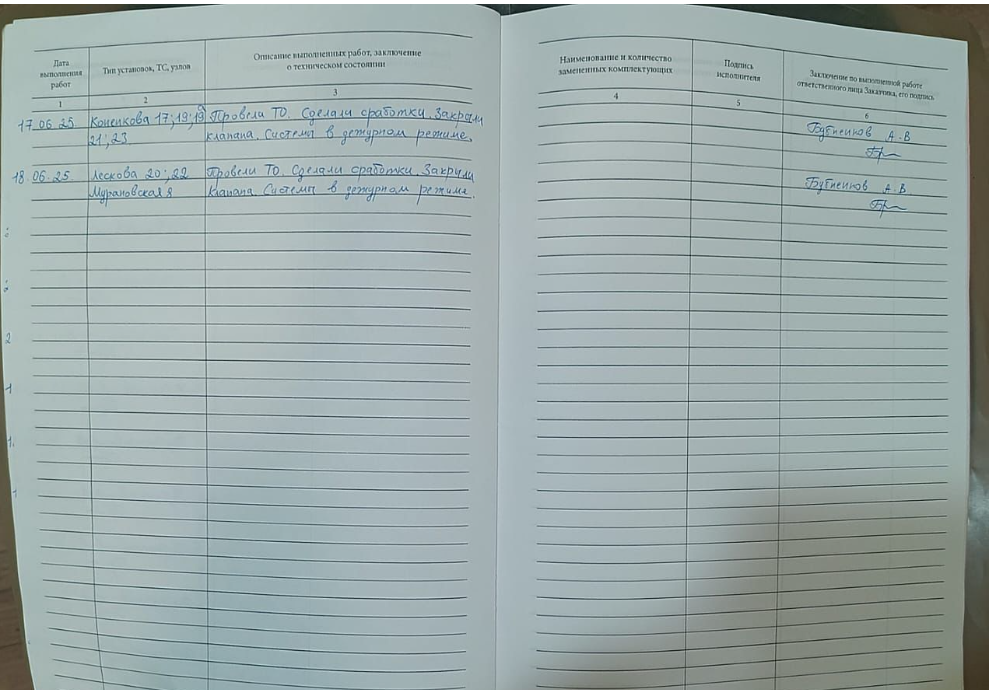 Дата выполнения работ
Тип установок, ТС, узлов
Описание выполненных работ, заключение о техническом состоянии
Наименование и количество замененных комплектующих
Подпись исполнителя
Заключение по выполненной работе ответственного лица Заказчика, его подпись
1 2 3 4 5 6
17.06.25 Коненкова 17;19;19 Провели ТО. Сделали сработки. Закрыли
21;23 клапана. Системы в дежурном режиме.
18.06.25 Лескова 20;22 Провели ТО. Сделали сработки. Закрыли
Мурановская 8 клапана. Системы в дежурном режиме.
А.В
А.В